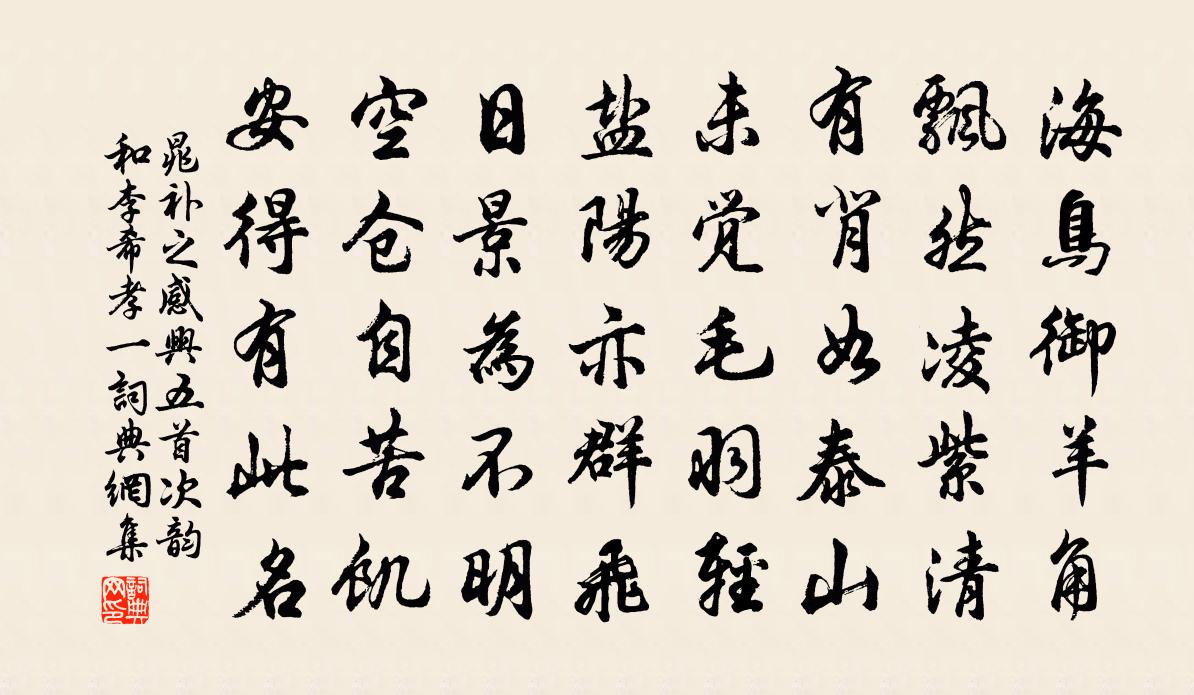 海鳥御羊角
飄然凌紫清
有背如泰山
未觉毛羽輕
盐陽亦群飛
日景為不明
空仓自苦飢
安得有此名
晁补之感興五首次韵
和李希孝一詞典網集
詞典网印